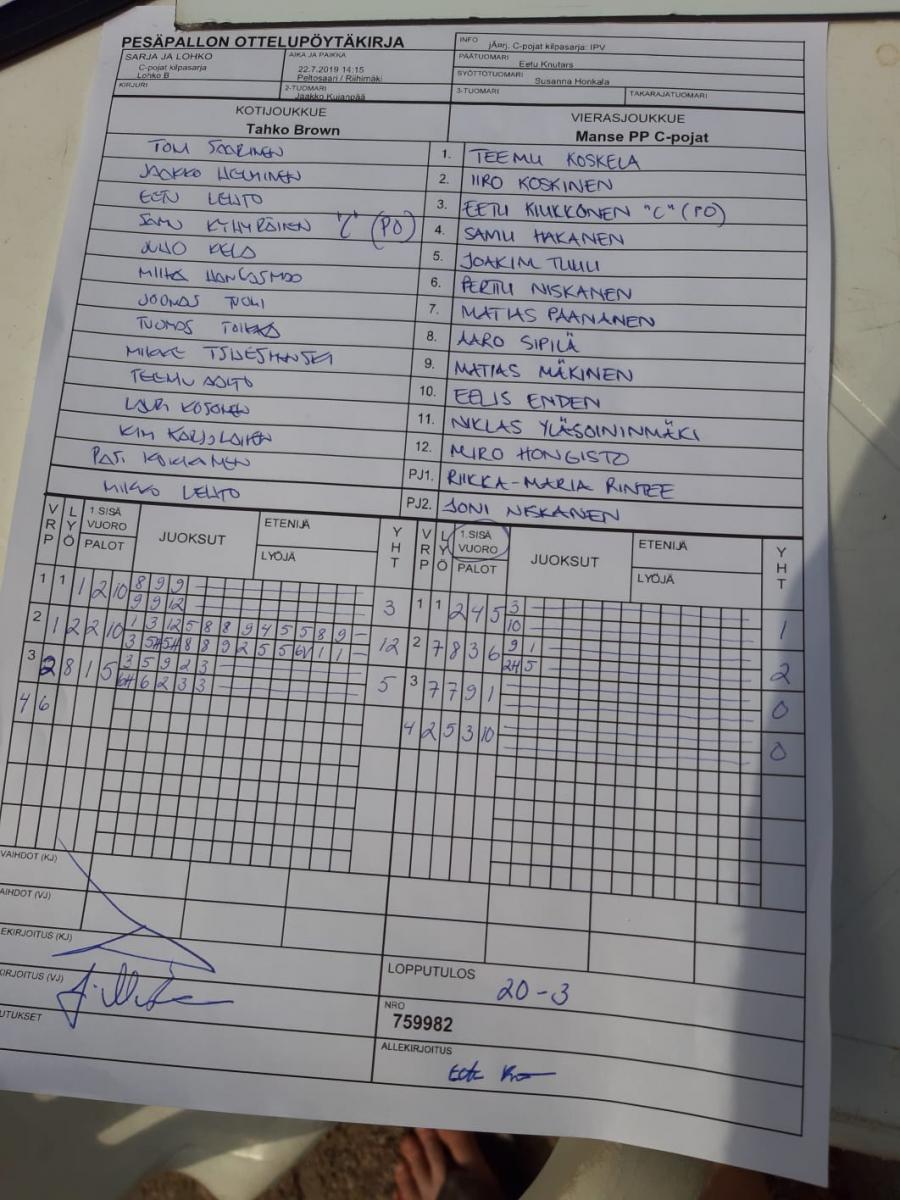 PESÄPALLON OTTELUPÖYTÄKIRJA
INFO jÄarj. C-pojat kilpasarja: IPV
SARJA JA LOHKO
C-pojat kilpasarja
Lohko B
AIKA JA PAIKKA
22.7.2019 14:15
Peltosaari / Riihimäki
PÄÄTUOMARI Eetu Knutars
SYÖTTÖTUOMARI Susanna Honkala
KIRJURI
2-TUOMARI
Jaakko Kujanpää
3-TUOMARI
TAKARAJATUOMARI
KOTIJOUKKUE
Tahko Brown
VIERASJOUKKUE
Manse PP C-pojat
TOMI SAARINEN 1. TEEMU KOSKELA
JAAKKO HELMINEN 2. IIRO KOSKINEN
EETU LEHTO 3. EETU KIUKKONEN "C" (PO)
SAMU "C" (PO) 4. SAMU HAKANEN
JUHO KELA 5. JOAKIM TUULI
MIIKA 6. PERTTU NISKANEN
JOONAS TUOMI 7. MATIAS PAANANEN
TUOMAS TOIKKA 8. AARO SIPILÄ
MIKKE 9. MATIAS MÄKINEN
TEEMU AALTO 10. EELIS ENDEN
LAURI KOSONEN 11. NIKLAS YLÄSOININMÄKI
KIM KARJALAINEN 12. MIRO HONGISTO
PASI KOKKONEN PJ1. RIIKKA-MARIA RINTEE
MIKKO LEHTO PJ2. JONI NISKANEN
VRP LYÖ 1.SISÄ VUORO PALOT JUOKSUT ETENIJÄ LYÖJÄ YHT VRP LYÖ 1.SISÄ VUORO PALOT JUOKSUT ETENIJÄ LYÖJÄ YHT
1 1 1 2 10 8 9 9 3 1 1 2 4 5 3 1
9 9 12 10
2 1 2 2 10 1 3 12 5 8 8 9 4 5 5 8 9 12 2 7 8 3 6 9 1 2
3 5H 5H 8 8 9 2 5 5 6V 1 1 2H 5
3 2 8 1 5 3 5 9 2 3 5 3 7 7 9 1 0
6H 6 2 3 3
4 6 4 2 5 3 10 0
VAIHDOT (KJ)
AIHDOT (VJ)
EKIRJOITUS (KJ)
KIRJOITUS (VJ)
LOPPUTULOS 20-3
UTUKSET
NRO
759982
ALLEKIRJOITUS